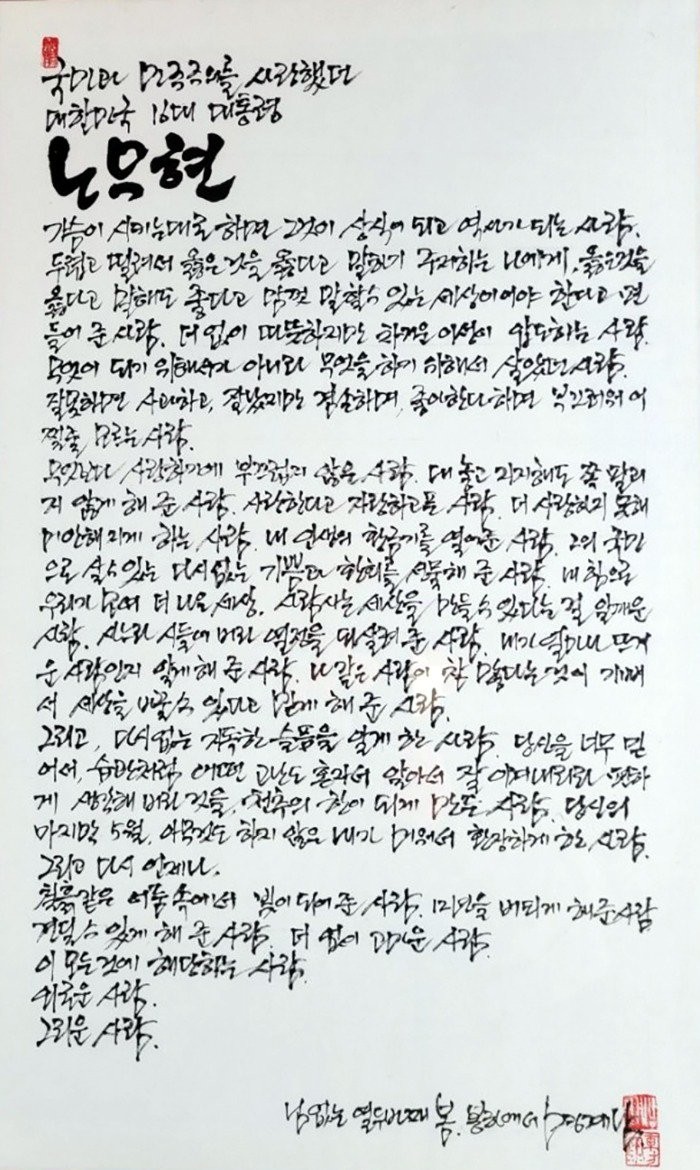 국민과 민주주의를 사랑했던
대한민국 16대 대통령
노무현
가슴이 시키는대로 하면 그것이 상식이 되고 역사가 되는 사람.
두렵고 떨려서 옳은 것을 옳다고 말하기 주저하는 나에게, 옳은것을
옳다고 말해도 좋다고 맘껏 말할수 있는 세상이어야 한다고 편
들어 준 사람. 더 없이 따뜻하지만 차가운 이성이 압도하는 사람.
무엇이 되기 위해서가 아니라 무엇을 하기 위해서 살았던 사람.
잘못하면 사과하고, 잘났지만 겸손하며, 좋아한다 하면 부끄러워 어
찌할줄 모르는 사람.
무엇보다 사랑하기에 부끄럽지 않은 사람. 대 놓고 지지해도 쪽 팔리
지 않게 해 준 사람. 사랑한다고 자랑하고픈 사람. 더 사랑하지 못해
미안해지게 하는 사람. 내 인생의 황금기를 열어준 사람. 그의 국민
으로 살 수 있는 다시 없는 기쁨과 환희를 선물해 준 사람. 내 힘으로
우리가 모여 더 나은 세상. 사람사는 세상을 만들 수 있다는 걸 일깨운
사람. 사느라 시들어 버린 열정을 되살려 준 사람. 내가 얼마나 뜨거
운 사람인지 알게 해 준 사람. 나 같은 사람이 참 많다는 것이 기뻐
서 세상을 바꿀 수 있다고 믿게 해 준 사람.
그리고, 다시 없는 지독한 슬픔을 알게 한 사람. 당신을 너무 믿
어서, 습관처럼 어떤 고난도 혼자서 알아서 잘 이겨내리라 편하
게 생각해 버린 것을, 천추의 한이 되게 만든 사람. 당신의
마지막 5월, 아무것도 하지 않은 내가 미워서 환장하게 하는 사람.
그리고 다시 언제나.
칠흙같은 어둠 속에서 빛이 되어 준 사람. 12년을 버티게 해준 사람
견딜 수 있게 해 준 사람. 더 없이 고마운 사람.
이 모든 것에 해당하는 사람.
외로운 사람.
그리운 사람.
님 없는 열두번째 봄. 봉하에서